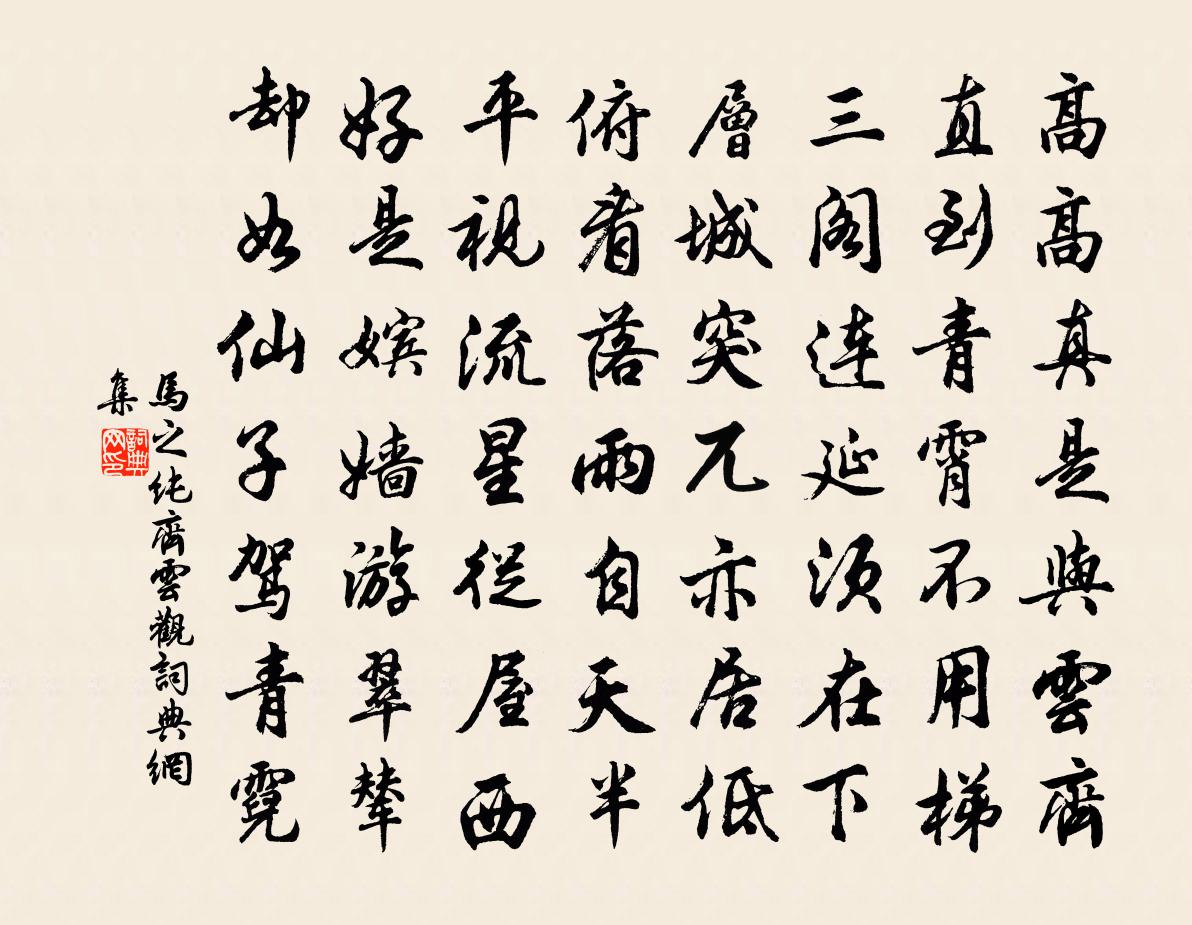 高高真是與雲齊
直到青霄不用梯
三閣連延須在下
層城突兀亦居低
俯看落雨自天半
平視流星從屋西
好是嬪嬙游翠輦
却如仙子駕青霓
馬之純齊雲觀詞典網
集
詞典網印